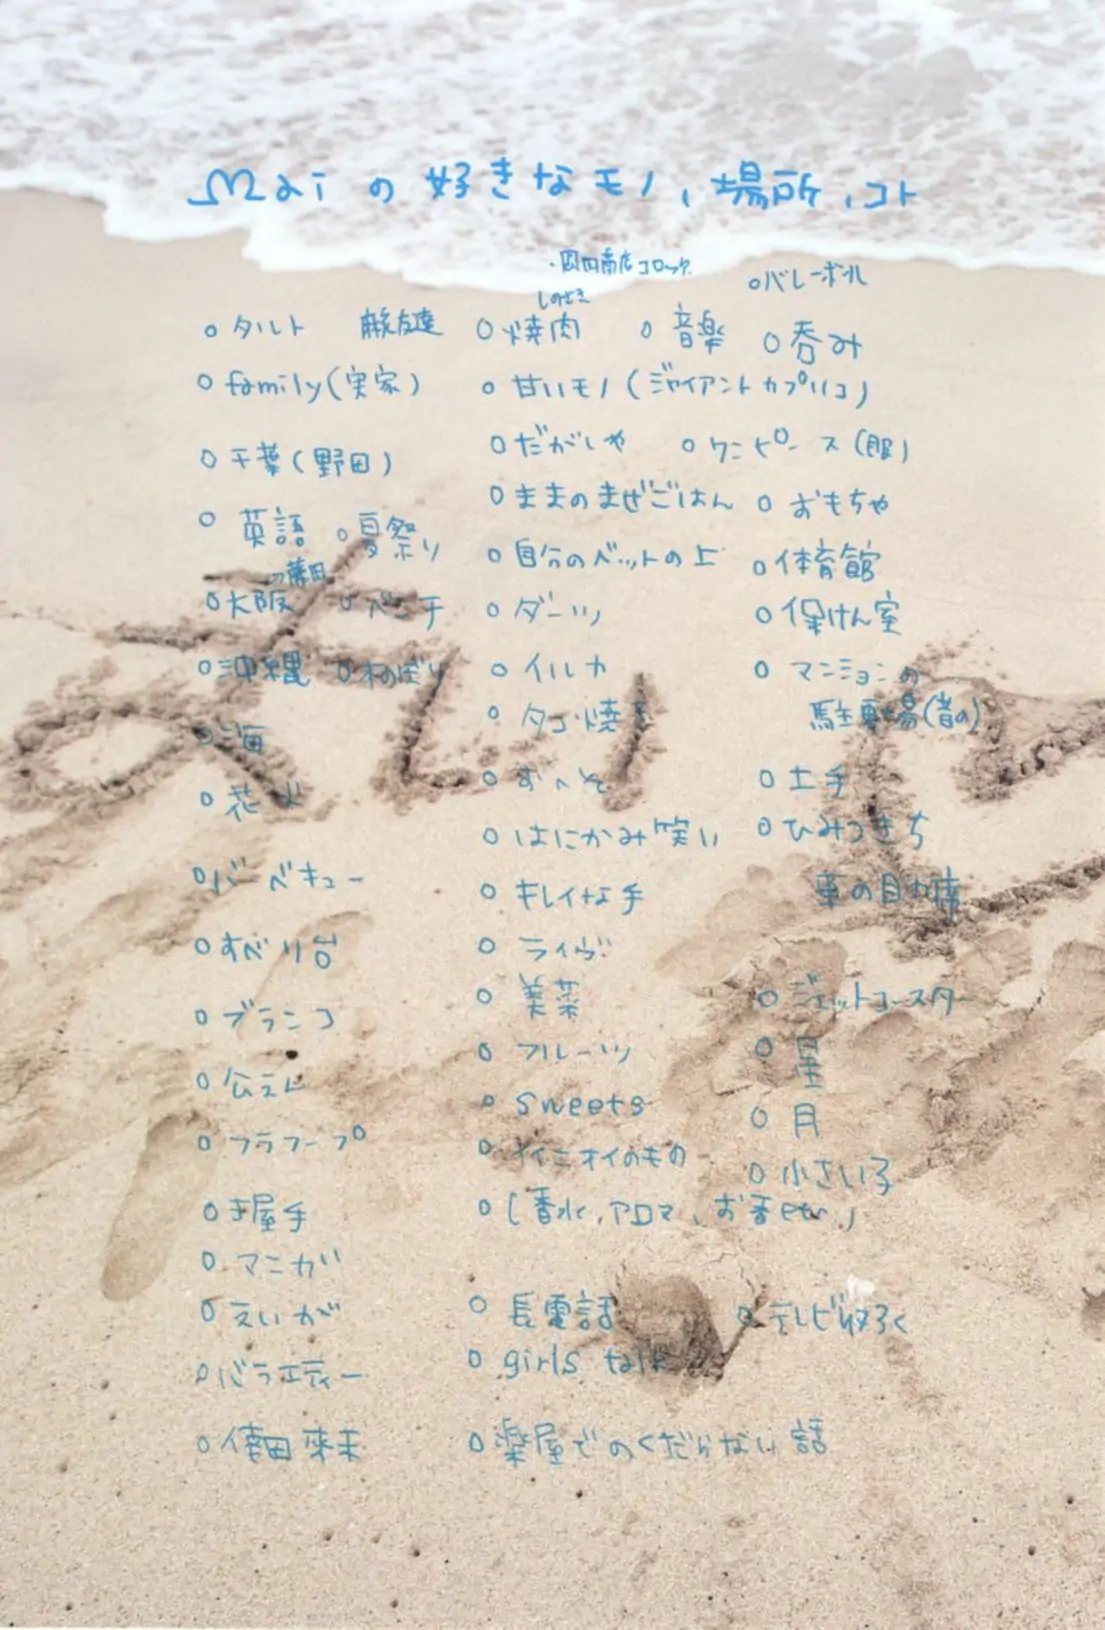 Maiの好きなモノ、場所、コト
・岡田商店コロッケ
○バレーボール
○タルト
親友達
○焼肉
○音楽
○呑み
○family(実家)
○甘いモノ(ジャイアントカプリコ)
○千葉(野田)
○だがしや
○ワンピース(服)
○英語
○夏祭り
○ままのまぜごはん
○おもちゃ
○大阪
○自分のベットの上
○体育館
○沖縄
○木のぼり
○ダーツ
○保けん室
○海
○イルカ
○マンションの
駐車場(昔の)
○花火
○タコ焼き
○おへそ
○土手
○バーベキュー
○はにかみ笑い
○ひみつきち
○すべり台
○キレイな手
○ブランコ
○ライヴ
○ジェットコースター
○フルーツ
○星
○フラフープ
○sweets
○月
○イイニオイのもの
○小さい子
○(香水、アロマ、お香etc)
○マニガ
○えいが
○長電話
○テレビ収ろく
○バラエティー
○girls talk
○倖田來未
○楽屋でのくだらない話